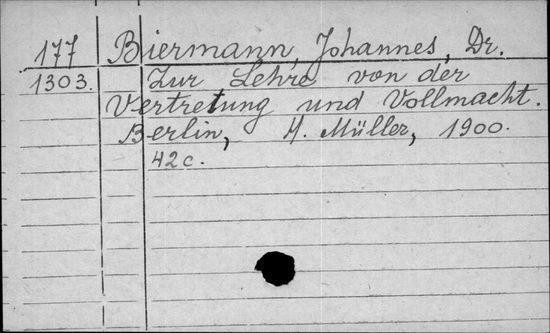 177 Biermann, Johannes, Dr.
1303. Zur Lehre von der
Vertretung und Vollmacht.
Berlin, H. Müller, 1900.
42c.